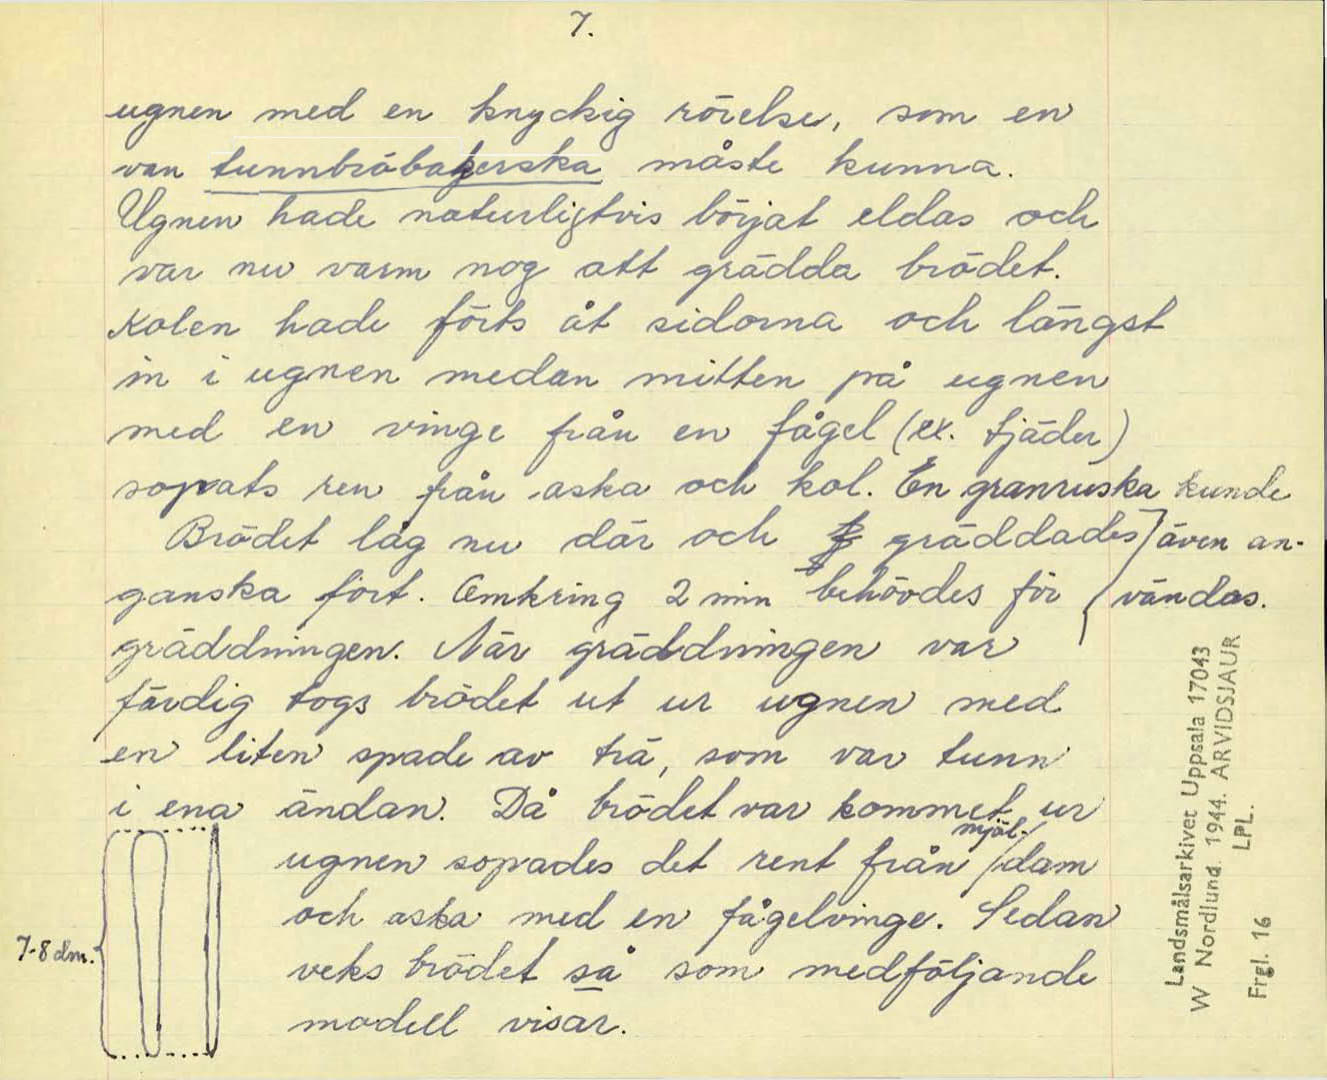 7.
ugnen med en knyckig rörelse, som en
van tunnbröbakerska måste kunna.
Ugnen hade naturligtvis börjat eldas och
var nu varm nog att grädda brödet.
Kolen hade förts åt sidorna och längst
in i ugnen medan mitten på ugnen
med en vinge från en fågel (ex. tjäder)
sopats ren från aska och kol. En granruska kunde
även an-
vändas.
Brödet låg nu där och gräddades
ganska fort. Omkring 2 min behövdes för
gräddningen. När gräddningen var
färdig togs brödet ut ur ugnen med
en liten spade av trä, som var tunn
i ena ändan. Då brödet var kommet ur
ugnen sopades det rent från mjöl-/dam
och aska med en fågelvinge. Sedan
veks brödet så som medföljande
modell visar.
7-8 dm.
Landsmålsarkivet Uppsala 17043
W Nordlund. 1944. ARVIDSJAUR
Frgl. 16 LPL.